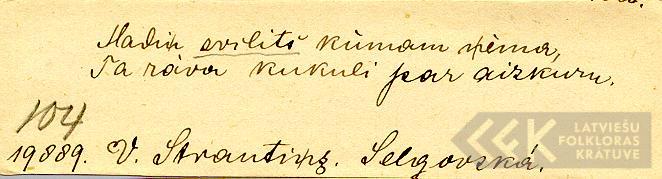 Madiņ svilits kūmam ņēma,
Ta rāva kukuli par aizkuru.
104
19889. V. Strantiņš. Selgovskā.
LATVIEŠU
FOLKLORAS
KRĀTUVE